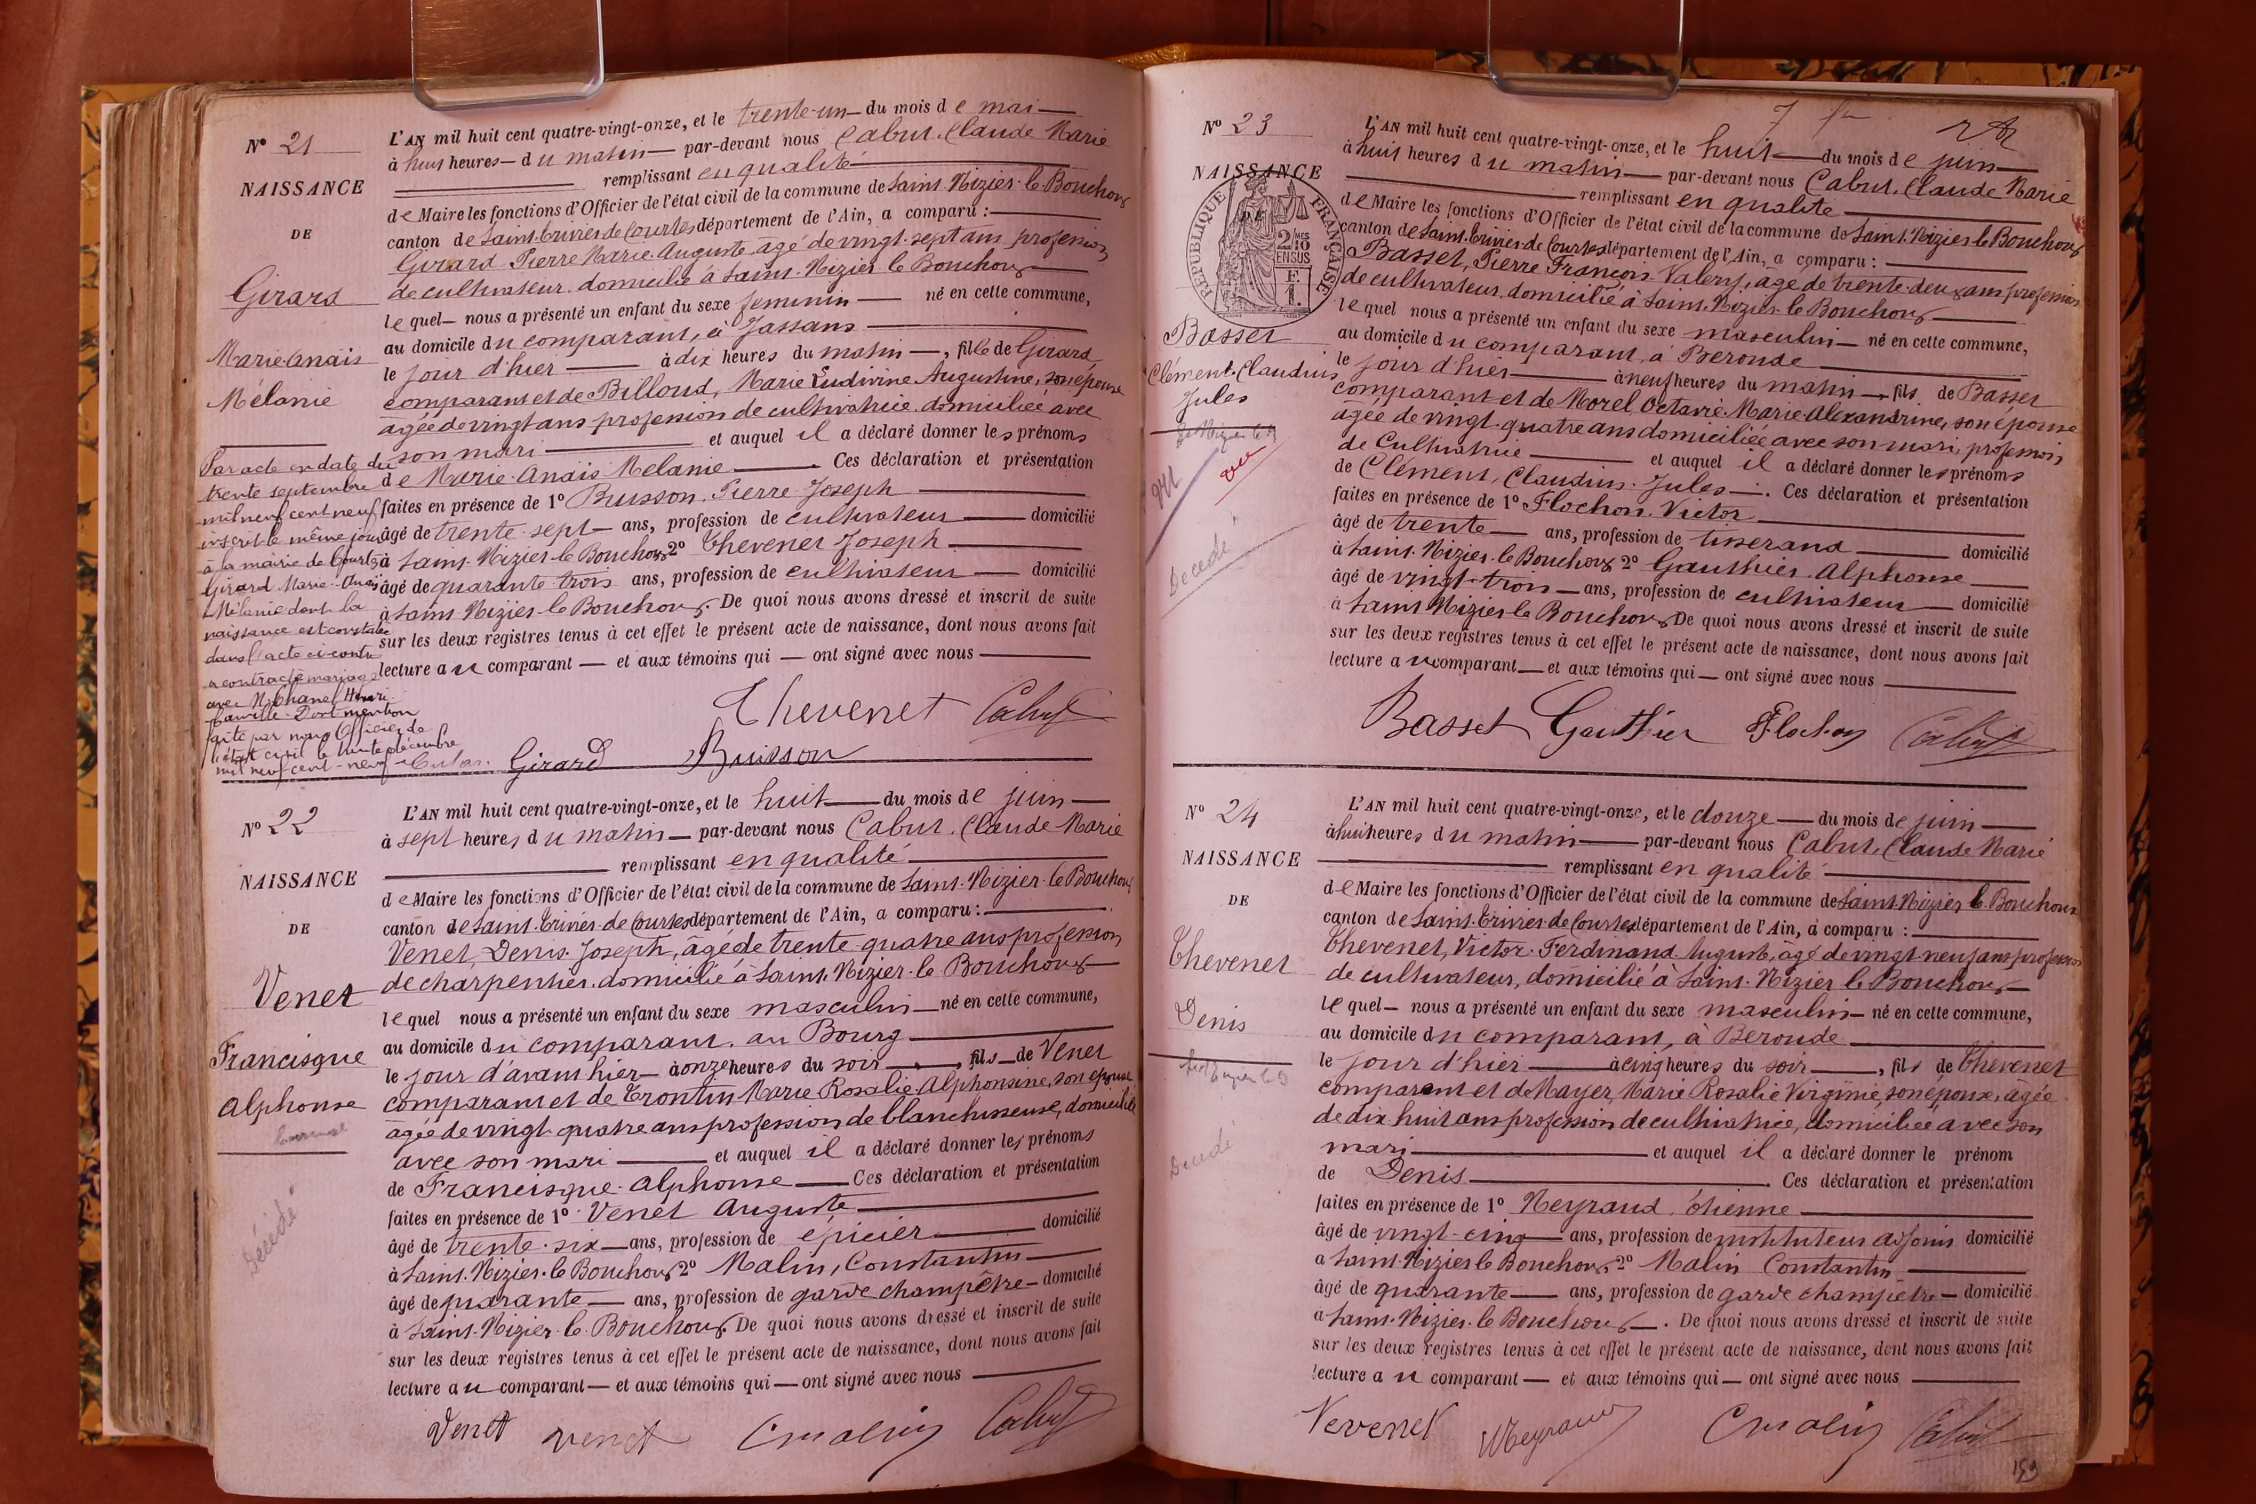 N° 21
NAISSANCE
DE
Girard
Marie-Anaïs
Mélanie
Par acte en date du
trente septembre
mil neuf cent neuf
inscrit le même jour
à la mairie de Courtes
Girard Marie-Anaïs
Mélanie dont la
naissance est constatée
dans l'acte ci-contre
a contracté mariage
avec M. Chanel Henri
Camille. Dont mention
faite par nous Officier de
l'état civil le trente décembre
mil neuf cent-neuf
L'AN mil huit cent quatre-vingt-onze, et le trente-un du mois de mai
à huit heures du matin par-devant nous Cabut, Claude Marie
remplissant en qualité
de Maire les fonctions d'Officier de l'état civil de la commune de Saint-Nizier-le-Bouchoux
canton de Saint-Trivier-de-Courtes département de l'Ain, a comparu :
Girard Pierre Marie Auguste, âgé de vingt-sept ans profession
de cultivateur domicilié à Saint-Nizier le Bouchoux
lequel nous a présenté un enfant du sexe feminin né en cette commune,
au domicile du comparant, à Jassans
le jour d'hier à dix heures du matin, fille de Girard
comparant et de Billoud, Marie Ludivine Augustine, son épouse
agée de vingt ans profession de cultivatrice domiciliée avec
son mari et auquel il a déclaré donner les prénoms
de Marie-Anaïs Melanie. Ces déclaration et présentation
faites en présence de 1° Buisson Pierre Joseph
âgé de trente-sept ans, profession de cultivateur domicilié
à Saint-Nizier-le-Bouchoux 2° Thevenet Joseph
âgé de quarante-trois ans, profession de cultivateur domicilié
à Saint-Nizier-le-Bouchoux. De quoi nous avons dressé et inscrit de suite
sur les deux registres tenus à cet effet le présent acte de naissance, dont nous avons fait
lecture au comparant et aux témoins qui ont signé avec nous
Thevenet Cabut
Girard Buisson
N° 22
NAISSANCE
DE
Venet
Francisque
Alphonse
Décédé
L'AN mil huit cent quatre-vingt-onze, et le huit du mois de juin
à sept heures du matin par-devant nous Cabut, Claude Marie
remplissant en qualité
de Maire les fonctions d'Officier de l'état civil de la commune de Saint-Nizier-le-Bouchoux
canton de Saint-Trivier-de-Courtes département de l'Ain, a comparu :
Venet, Denis Joseph, âgé de trente-quatre ans profession
de charpentier domicilié à Saint-Nizier-le-Bouchoux
lequel nous a présenté un enfant du sexe masculin né en cette commune,
au domicile du comparant, au Bourg
le jour d'avant hier à onze heures du soir, fils de Venet
comparant et de Trontin Marie Rosalie Alphonsine, son épouse
âgée de vingt-quatre ans profession de blanchisseuse, domiciliée
avec son mari et auquel il a déclaré donner les prénoms
de Francisque-Alphonse Ces déclaration et présentation
faites en présence de 1° Venet Auguste
âgé de trente-six ans, profession de épicier domicilié
à Saint-Nizier-le-Bouchoux 2° Malin, Constantin
âgé de quarante ans, profession de garde champêtre domicilié
à Saint-Nizier-le-Bouchoux. De quoi nous avons dressé et inscrit de suite
sur les deux registres tenus à cet effet le présent acte de naissance, dont nous avons fait
lecture au comparant et aux témoins qui ont signé avec nous
Venet Venet Cmalin Cabut
N° 23
NAISSANCE
DE
RÉPUBLIQUE FRANÇAISE
2 MES
10
EN SUS
Basset
Clément-Claudius
Jules
vu
Decédé
L'AN mil huit cent quatre-vingt-onze, et le huit du mois de juin
à huit heures du matin par-devant nous Cabut, Claude Marie
remplissant en qualité
de Maire les fonctions d'Officier de l'état civil de la commune de Saint-Nizier-le-Bouchoux
canton de Saint-Trivier-de-Courtes département de l'Ain, a comparu :
Basset, Pierre François Valery, âgé de trente-deux ans profession
de cultivateur domicilié à Saint-Nizier-le-Bouchoux
lequel nous a présenté un enfant du sexe masculin né en cette commune,
au domicile du comparant, à Beronde
le jour d'hier à neuf heures du matin fils de Basset
comparant et de Morel Octavie Marie Alexandrine, son épouse
âgée de vingt-quatre ans domiciliée avec son mari, profession
de Cultivatrice et auquel il a déclaré donner les prénoms
de Clément, Claudius, Jules. Ces déclaration et présentation
faites en présence de 1° Flochon Victor
âgé de trente ans, profession de tisserand domicilié
à Saint-Nizier-le-Bouchoux 2° Gauthier Alphonse
âgé de vingt-trois ans, profession de cultivateur domicilié
à Saint Nizier-le-Bouchoux De quoi nous avons dressé et inscrit de suite
sur les deux registres tenus à cet effet le présent acte de naissance, dont nous avons fait
lecture au comparant et aux témoins qui ont signé avec nous
Basset Gauthier Flochon Cabut
N° 24
NAISSANCE
DE
Thevenet
Denis
Décédé
L'AN mil huit cent quatre-vingt-onze, et le douze du mois de juin
à huit heures du matin par-devant nous Cabut, Claude Marie
remplissant en qualité
de Maire les fonctions d'Officier de l'état civil de la commune de Saint-Nizier le Bouchoux
canton de Saint-Trivier-de-Courtes département de l'Ain, a comparu :
Thevenet, Victor Ferdinand Auguste, âgé de vingt-neuf ans profession
de cultivateur, domicilié à Saint-Nizier le Bouchoux
lequel nous a présenté un enfant du sexe masculin né en cette commune,
au domicile du comparant, à Beroude
le jour d'hier à cinq heures du soir, fils de Thevenet
comparant et de Mayer Marie Rosalie Virginie, son épouse, âgée
de dix huit ans profession de cultivatrice, domiciliée avec son
mari et auquel il a déclaré donner le prénom
de Denis. Ces déclaration et présentation
faites en présence de 1° Neyraud Étienne
âgé de vingt-cinq ans, profession de instituteur adjoint domicilié
à Saint-Nizier le Bouchoux 2° Malin Constantin
âgé de quarante ans, profession de garde champêtre domicilié
à Saint-Nizier-le-Bouchoux. De quoi nous avons dressé et inscrit de suite
sur les deux registres tenus à cet effet le présent acte de naissance, dont nous avons fait
lecture au comparant et aux témoins qui ont signé avec nous
Tevenet Neyraud Cmalin Cabut